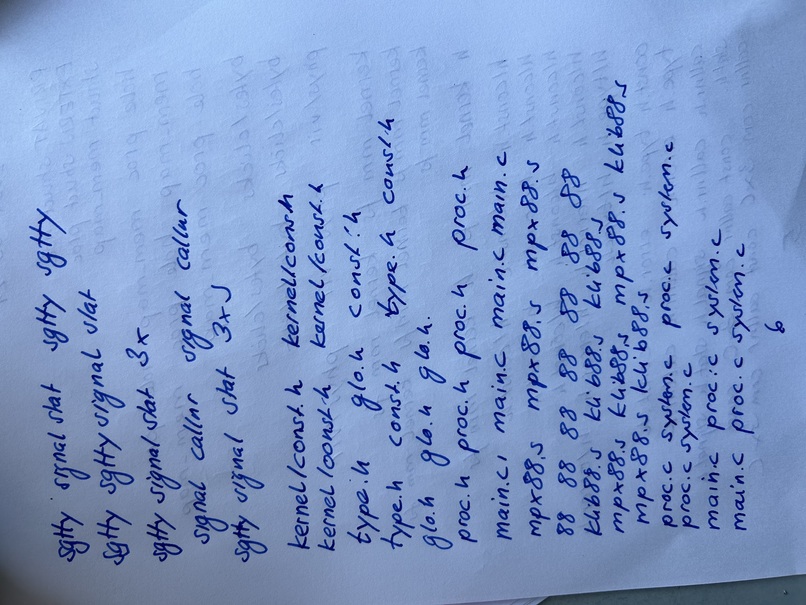 sgtty signal stat sgtty sgtty
sgtty sgtty signal stat
sgtty signal stat 3x
signal callnr signal callnr
sgtty signal stat 3x J
kernel/const.h kernel/const.h
kernel/const.h kernel/const.h
type.h glo.h const.h
type.h const.h type.h const.h
glo.h glo.h glo.h.
proc.h proc.h proc.h proc.h
main.c, main.c main.c main.c
mpx88.s mpx88.s mpx88.s
88 88 88 88 88 88 88
klib88.s klib88.s klib88.s
mpx88.s klib88.s mpx88.s klib88.s
mpx88.s klib88.s
proc.c system.c proc.c system.c
proc.c system.c
main.c proc.c system.c
main.c proc.c system.c
6